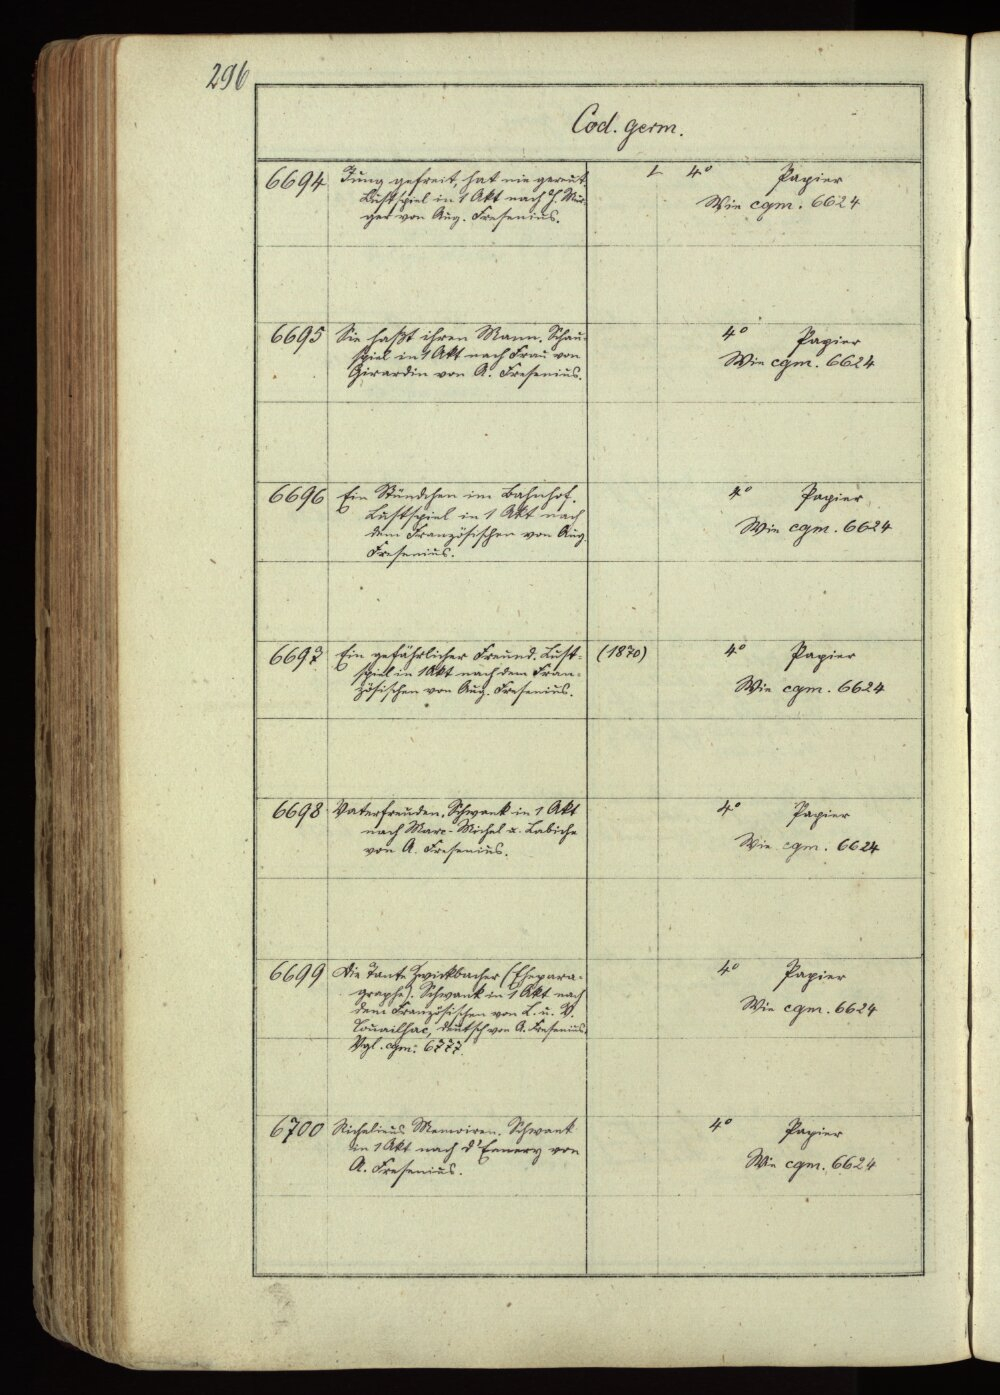 296
Cod. germ.
6694 Jung gefreit, hat nie gereut. 4° Papier
Lustspiel in 1 Akt nach H. Mür- Wie cgm. 6624
ger von Aug. Fresenius.
6695 Sie haßt ihren Mann. Schau- 4° Papier
spiel in 1 Akt nach Frau von Wie cgm. 6624
Girardin von A. Fresenius.
6696 Ein Stündchen im Bahnhof. 4° Papier
Lustspiel in 1 Akt nach Wie cgm. 6624
dem Französischen von Aug.
Fresenius.
6697 Ein gefährlicher Freund. Lust- (1870) 4° Papier
spiel in 1 Akt nach dem Fran- Wie cgm. 6624
zösischen von Aug. Fresenius.
6698 Vaterfreuden. Schwank in 1 Akt 4° Papier
nach Marc-Michel u. Labiche Wie cgm. 6624
von A. Fresenius.
6699 Die Tante Zwickbacher (Ehepara- 4° Papier
graphe). Schwank in 1 Akt nach Wie cgm. 6624
dem Französischen von L. u. V.
deutsch von A. Fresenius.
Vgl. cgm. 6777.
6700 Richelieus Memoiren. Schwank 4° Papier
in 1 Akt nach d'Ennery von Wie cgm. 6624
A. Fresenius.